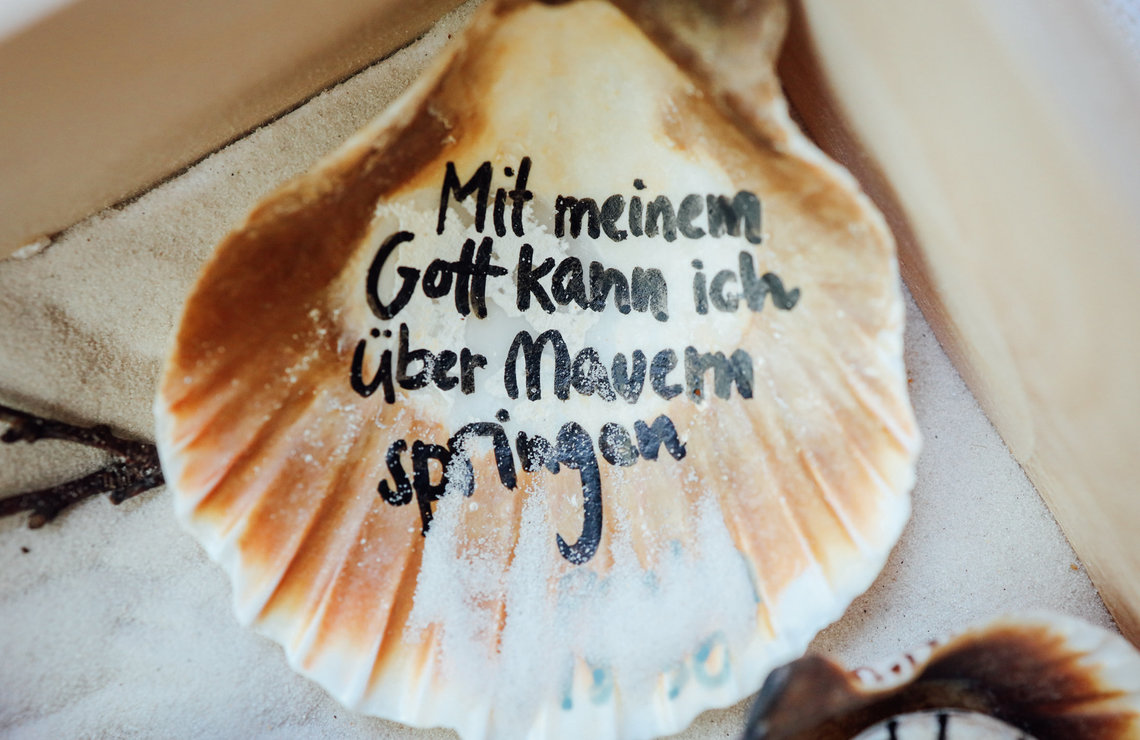 Mit meinem
Gott kann ich
über Mauern
springen